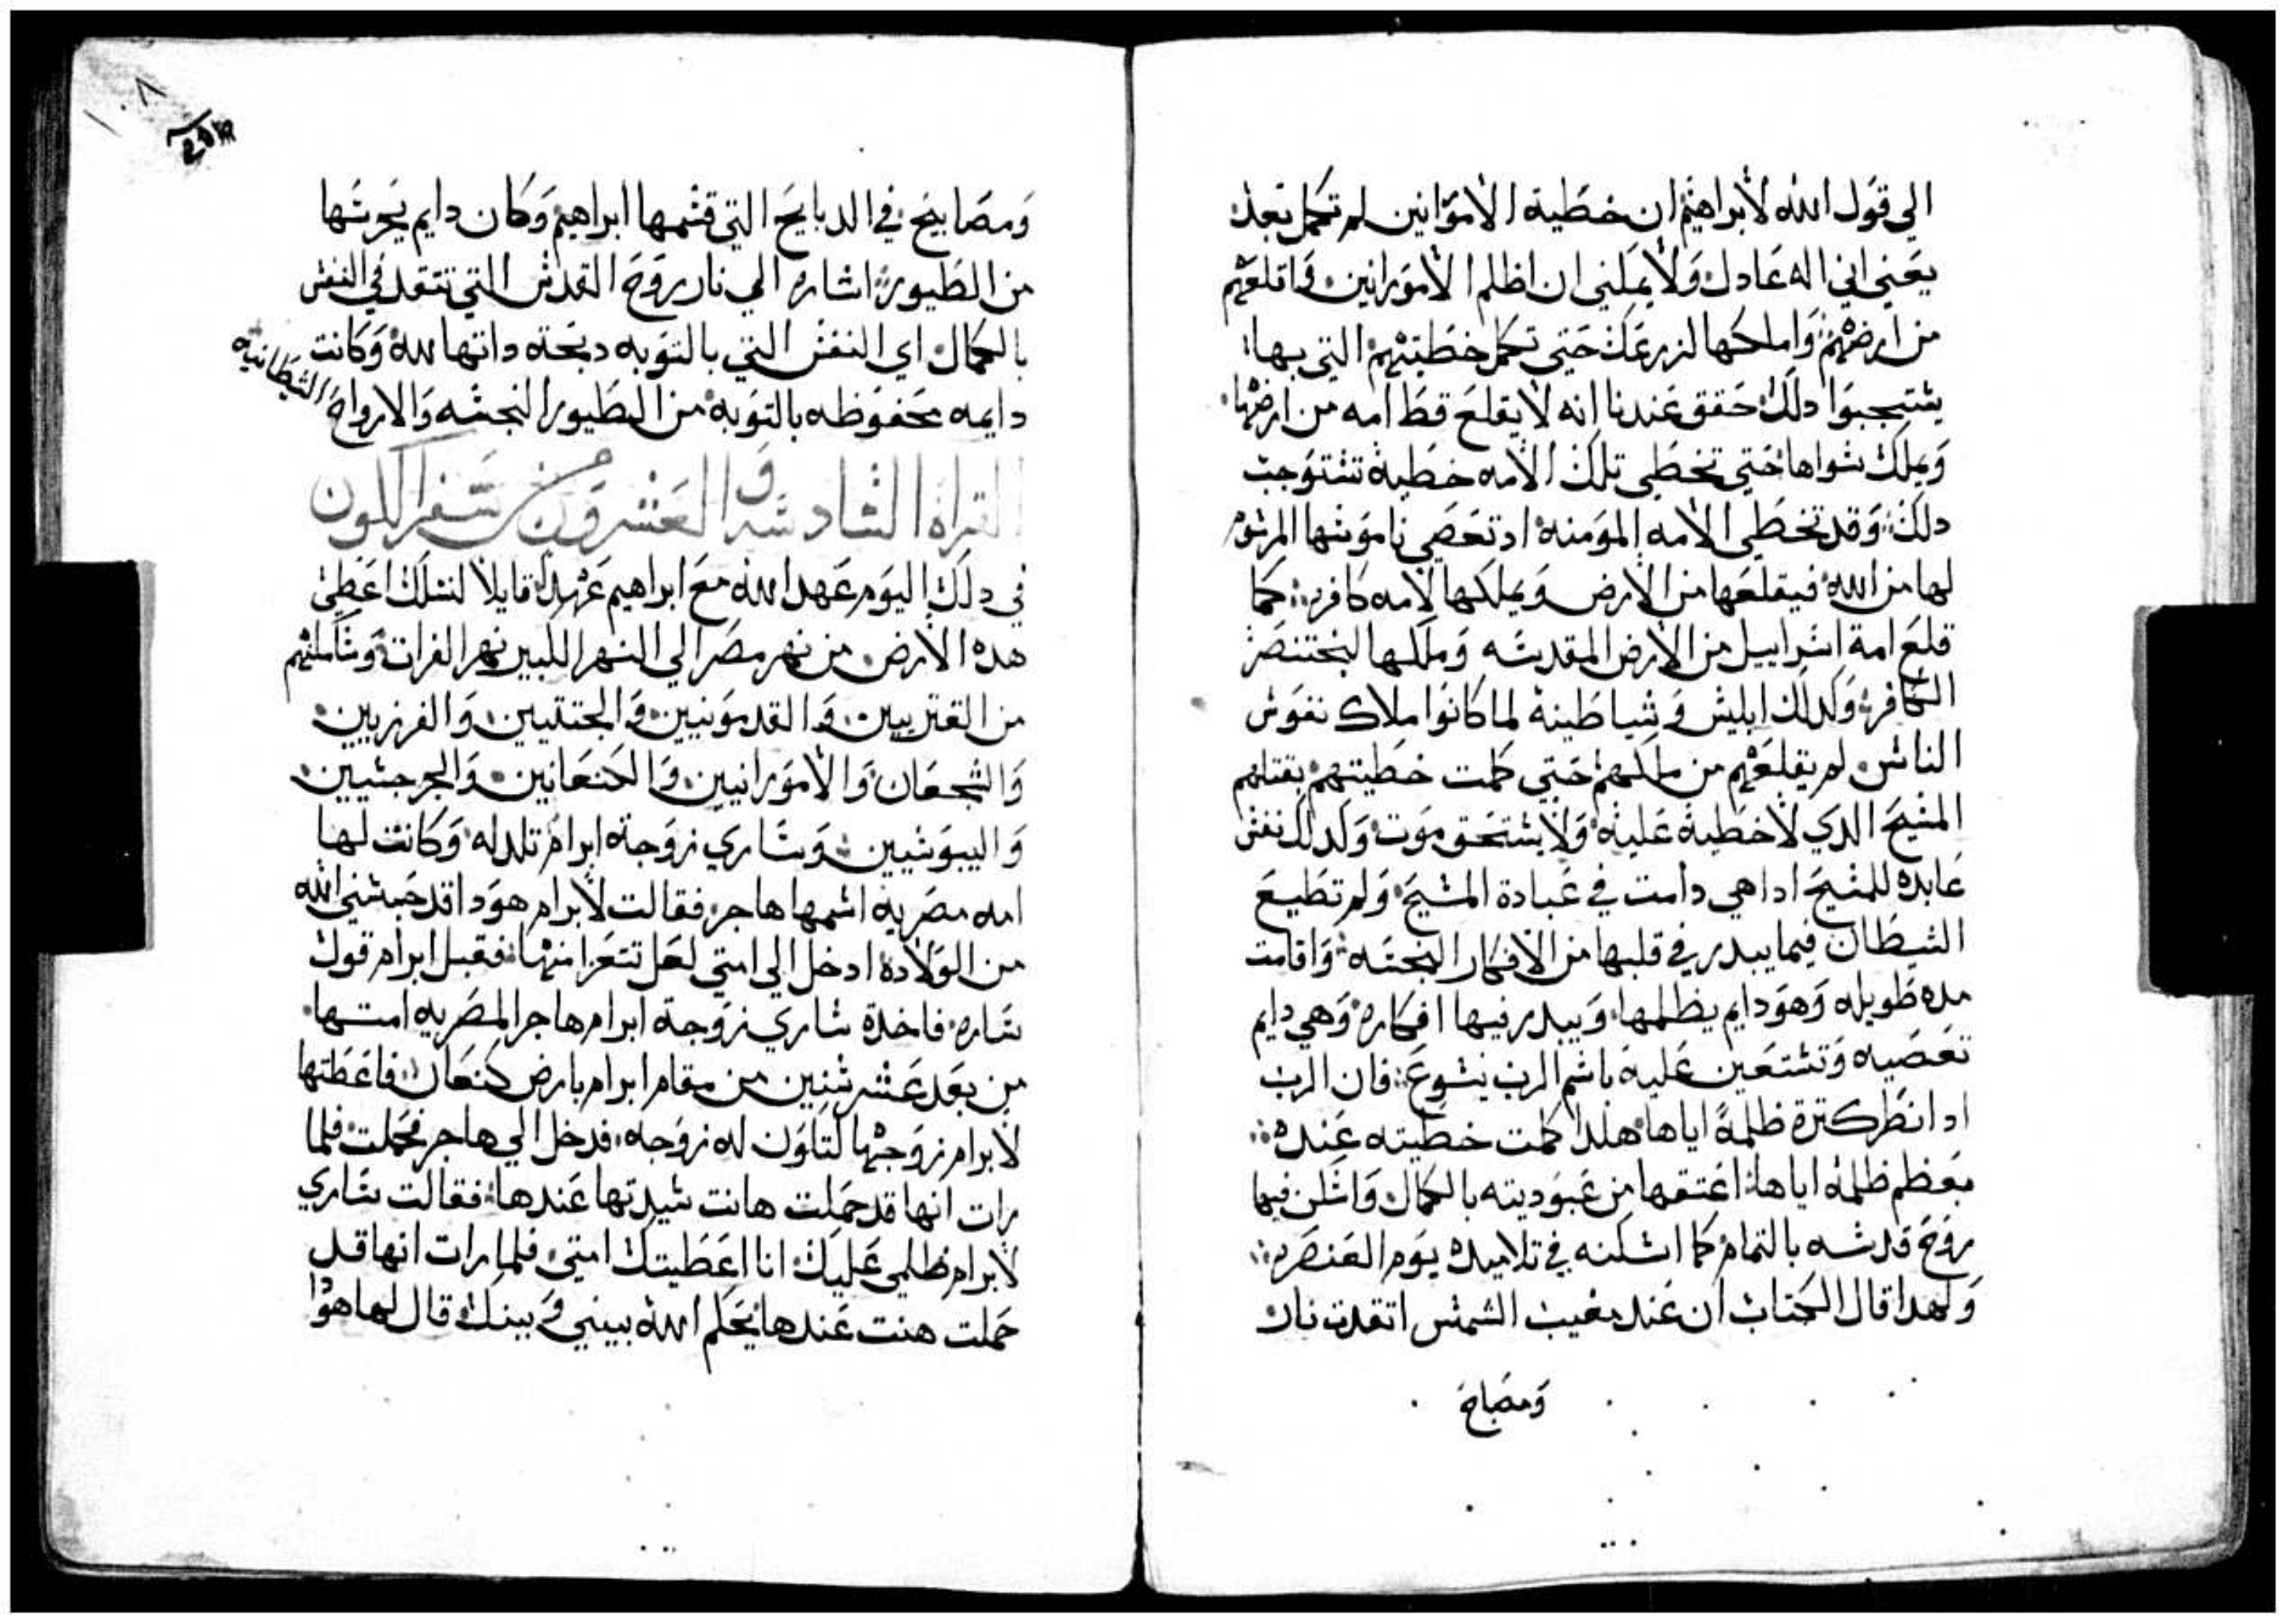 الي قول الله لابراهيم ان خطية الاموانين لم تكمل بعد
يعني اني اله عادل ولا يمكني ان اظلم الامورانين واقلعهم
من ارضهم واملكها لزرعك حتي تكمل خطيتهم التي بها
يستجبوا دلك حقق عندنا انه لا يقلع قط امه من ارضها
ويملك سواها حتي تخطي تلك الامه خطية تستوجب
دلك وقد تخطي الامه المومنه اد تعصي ناموسها المرسوم
لها من الله فيقلعها من الارض ويملكها لامه كافره كما
قلع امة اسراييل من الارض المقدسه وملكها لبختنصر
الكافر وكدلك ابليس وشياطينه لما كانوا ملاك نفوس
الناس لم يقلعهم من ملكهم حتي كملت خطيتهم بقتلهم
المسيح الدي لا خطية عليه ولا يستحق موت وكدلك نفس
عابده للمسيح ادا هي دامت في عبادة المسيح ولم تطيع
الشيطان فيما يبدر في قلبها من الافكار النجسه واقامت
مده طويله وهو دايم يظلمها ويبدر فيها افكاره وهي دايم
تعصيه وتستعين عليه باسم الرب يسوع فان الرب
ادا نظر كترة ظلمه اياها هكدا كملت خطيته عنده
بعظم ظلمه اياها اعتقها من عبوديته بالكمال واسكن فيها
روح قدسه بالتمام كما اسكنه في تلاميده يوم العنصره
ولهدا قال الكتاب ان عند مغيب الشمس اتقدت نار
ومصابح
ومصابيح في الدبايح التي قسمها ابراهيم وكان دايم يحرسها
من الطيور اشاره الي نار روح القدس التي تتقد في النفس
بالكمال اي النفس التي بالتوبه دبحة داتها لله وكانت
دايمه محفوظه بالتوبه من الطيور النجسه والارواح الشيطانيه
القراة السادسه والعشرون من سفر الكون
في دلك اليوم عهد الله مع ابراهيم عهدا قايلا لنسلك اعطي
هده الارض من نهر مصر الي النهر الكبير نهر الفرات وساملكهم
من القنزيين والقدمونيين والجتليين والفرزيين
والشجعان والامورانيين والكنعانين والجرجسيين
واليبوسيين وساري زوجة ابرام تلد له وكانت لها
امه مصريه اسمها هاجر فقالت لابرام هودا قد حبسني الله
من الولاده ادخل الي امتي لعل تتعزا منها فقبل ابرام قول
ساره فاخدة ساري زوجة ابرام هاجر المصريه امتها
من بعد عشر سنين من مقام ابرام بارض كنعان فاعطتها
لابرام زوجها لتكون له زوجه فدخل الي هاجر فحملت فلما
رات انها قد حملت هانت سيدتها عندها فقالت ساري
لابرام ظلمي عليك انا اعطيتك امتي فلما رات انها قد
حملت هنت عندها يحكم الله بيني وبينك قال لها هودا